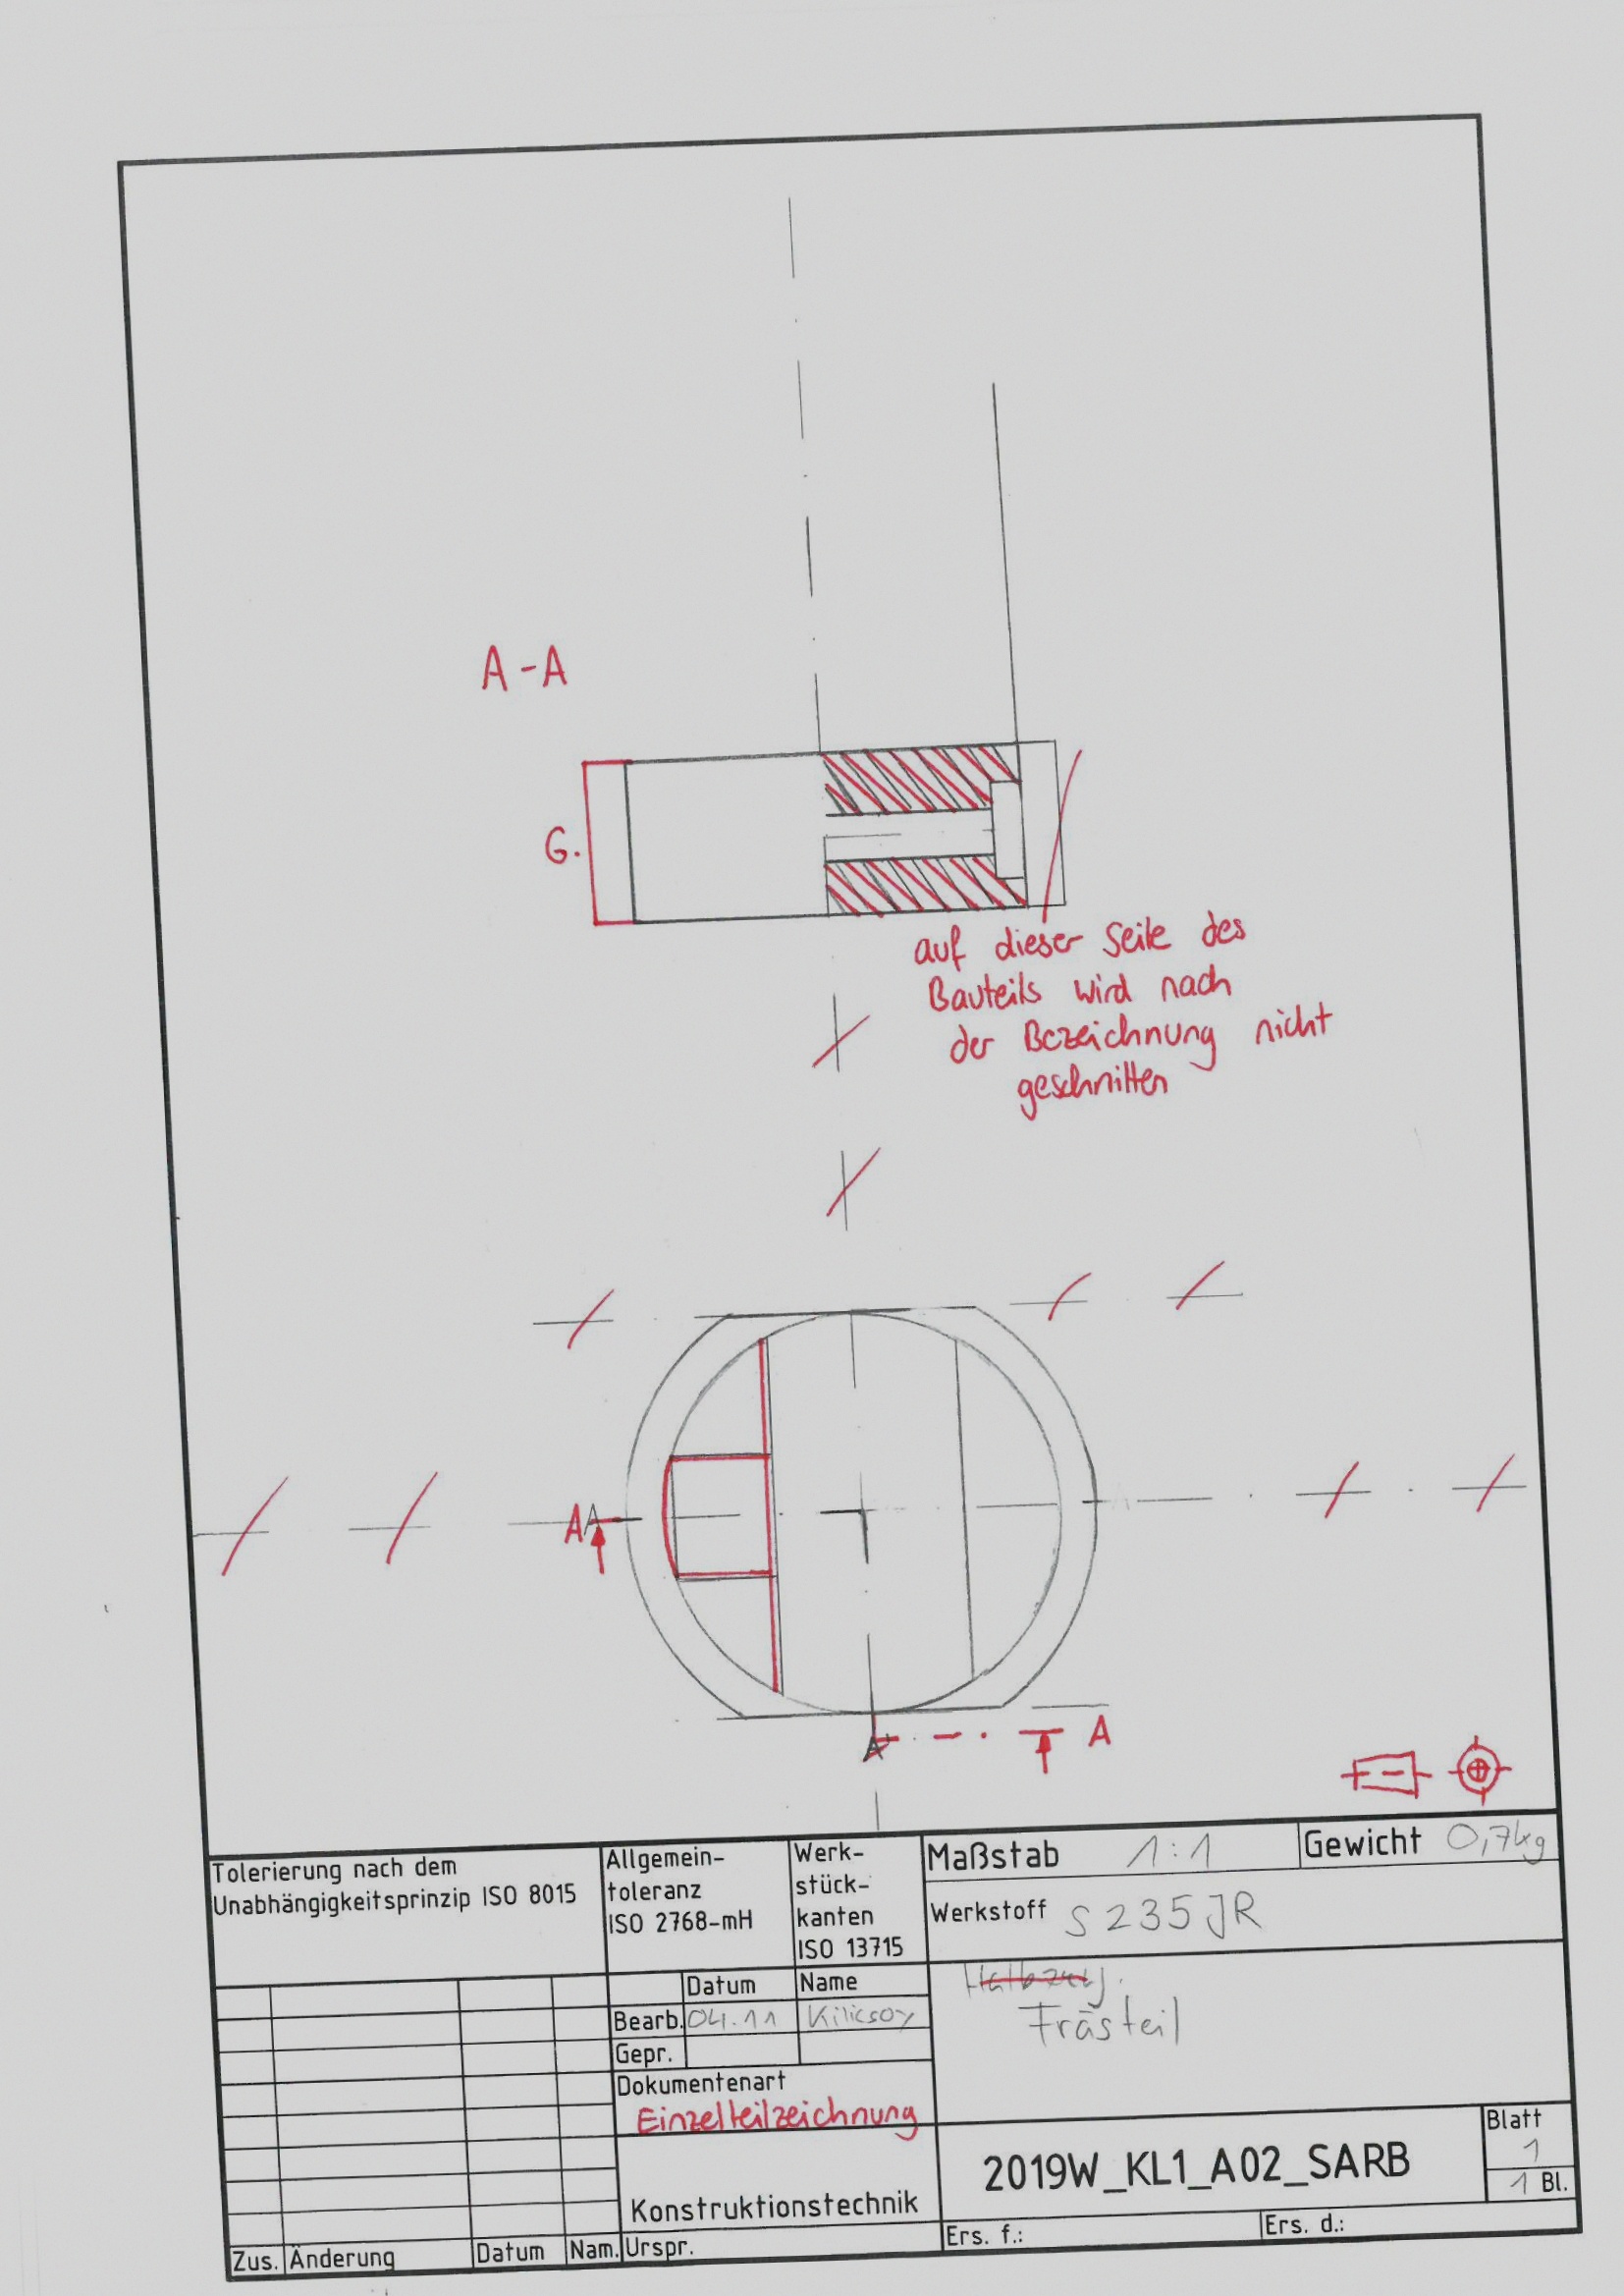 A-A
G.
auf dieser Seite des
Bauteils wird nach
der Bezeichnung nicht
geschnitten
A A
A
A
Tolerierung nach dem
Unabhängigkeitsprinzip ISO 8015
Allgemein-
toleranz
ISO 2768-mH
Werk-
stück-
kanten
ISO 13715
Maßstab 1:1
Gewicht 0,7kg
Werkstoff S235JR
Datum Name
Bearb. 04.11 Kilicsoy
Gepr.
Frästeil
Dokumentenart
Einzelteilzeichnung
Konstruktionstechnik
2019W_KL1_A02_SARB
Blatt
1
1 Bl.
Zus. Änderung Datum Nam. Urspr. Ers. f.: Ers. d.: